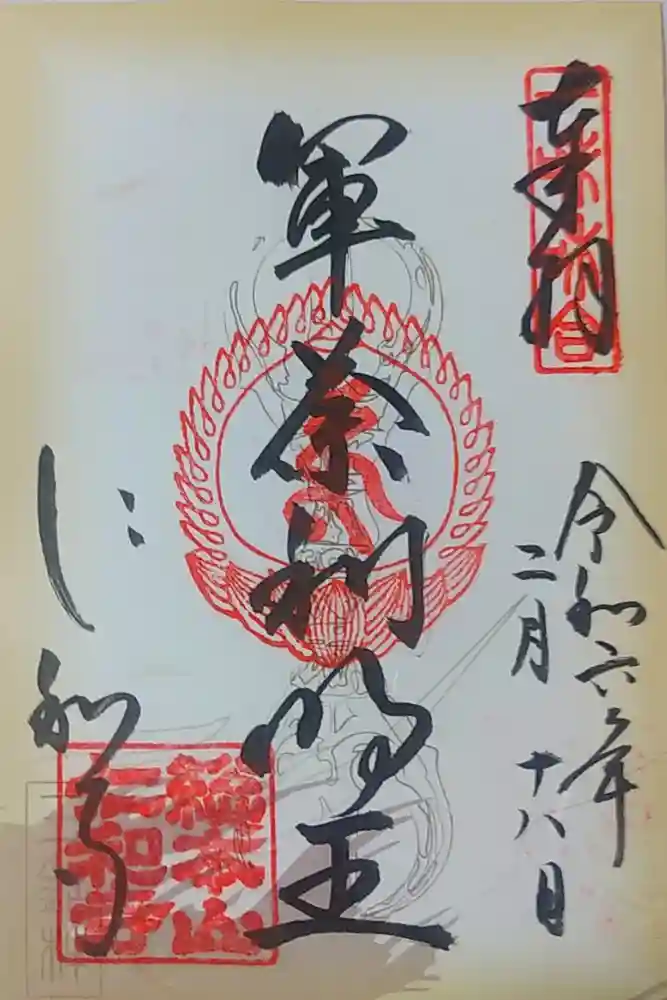 奉拝
令和六年
二月十八日
軍荼利明王
仁和寺
総本山
仁和寺